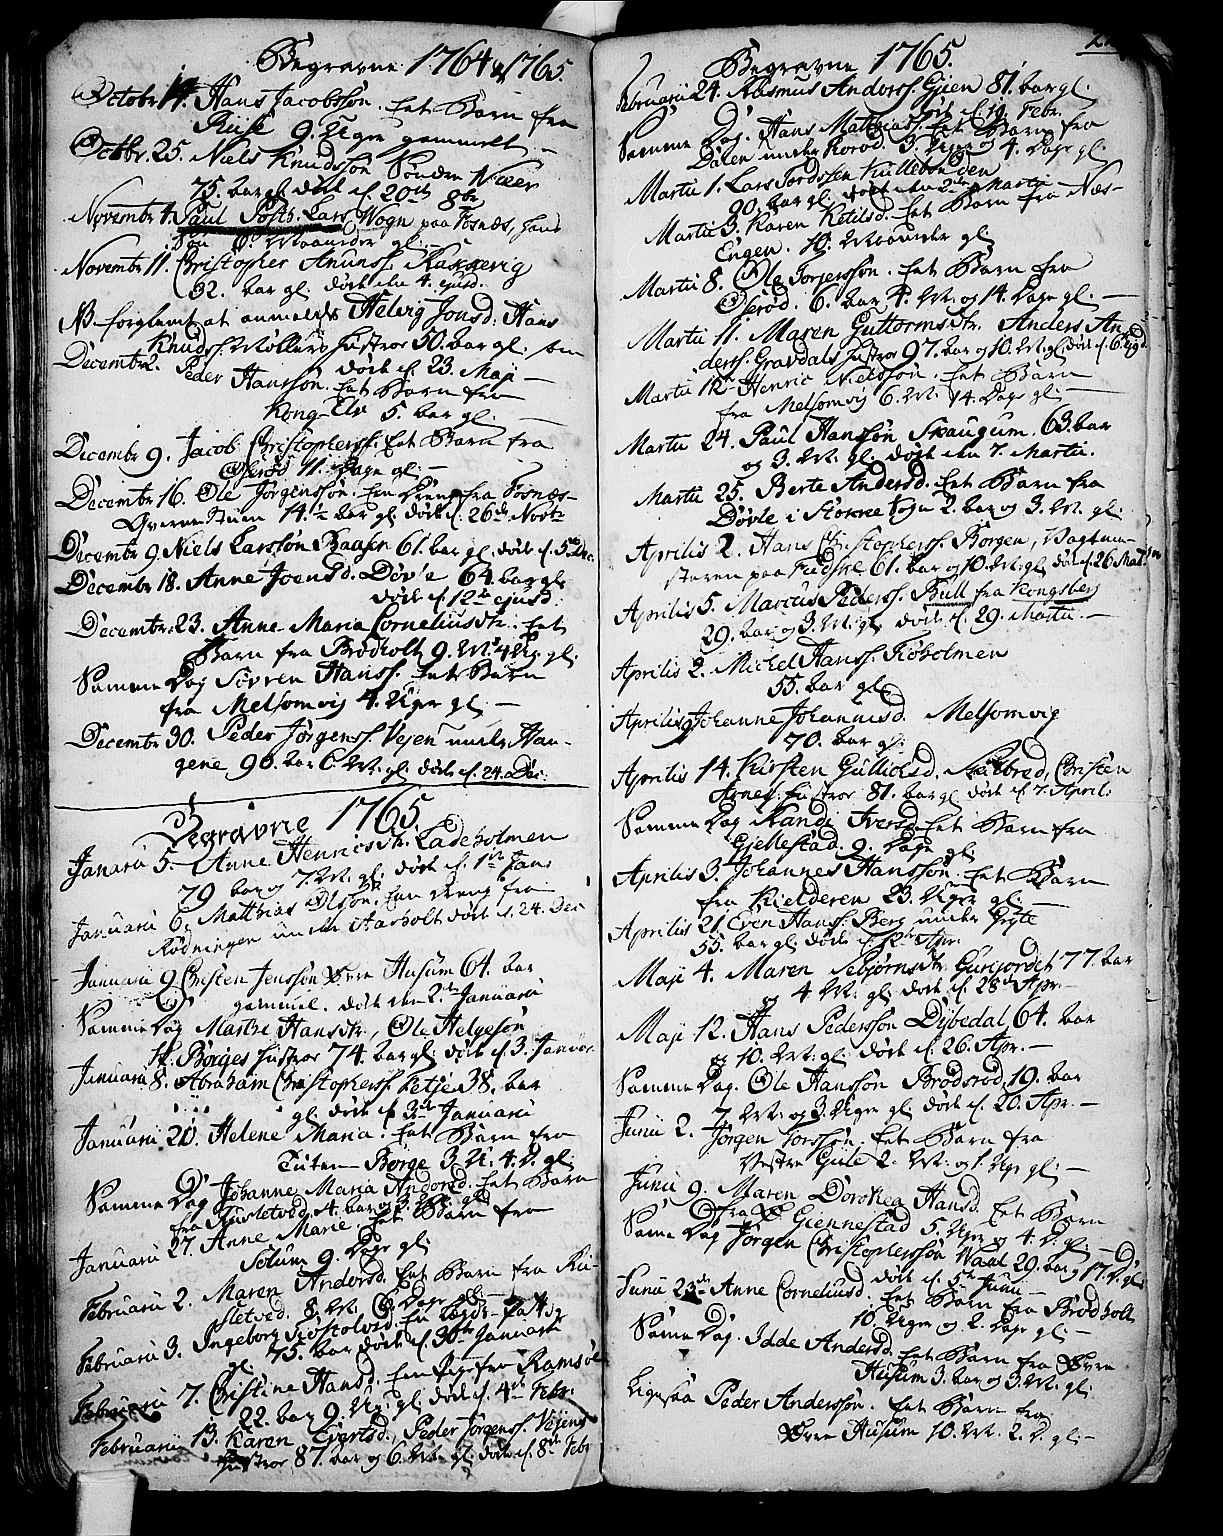 Begravne 1764 & 1765.
Octobr. 14. Hans Jacobssøn. Eet Barn fra
Ruse 9. Uger gammelt.
Octbr. 25. Niels Knudssøn Sønden Næes
75. Aar gl. døde d. 20de 8br.
Novembr 1. Paul PoVels. Lars Wogn paa Fosnæs, hans
Søn 6. Maaneder gl.
Novembr 11. Christopher Amunss. Rakkevig
32. Aar gl. døde den 4. ejusd.
NB forglemt at anmælde Helvig Jonsd. Hans
Knudss. Møllers Hustroe 50. Aar gl. som
døde d. 23. Maji
Decembr 2. Peder Hanssøn. Eet Barn fra
Kong-Elv 5. Aar gl.
Decembr 9. Jacob Christopherss. Eet Barn fra
Oserød 11. Dage gl.
Decembr 16. Ole Jørgenssøn. Een Dreng fra Fosnæs-
Qverne Stuen 14.½ Aar gl. døde d. 26de Novbr
Decembr 9. Niels Larssøn Baasen 61. Aar gl. døde d. 5te Dec.
Decembr 18. Anne Joensd. Døvle 64. Aar gl.
døde d. 12te ejusd.
Decembr. 23. Anne Maria Corneliusdtr. Eet
Barn fra Brødholt 9. M. 4 Ug. gl.
Samme Dag Sövren Hanss. Eet Barn
fra Melsomvig 4. Uger gl.
Decembr 30. Peder Jørgenss. Vejen under Hau-
gene 90. Aar 6. M. gl. døde d. 24. Dec.
Begravne 1765.
Januarii 5. Anne Henricsdtr. Ladeholmen
79 Aar og 7. M. gl. døde d. 1ste Janr
Januarii 6. Matthias Olssøn, Een Dreng fra
Rødningen under Aarholt døde d. 24. Dec
Januarii 9. Christen Jenssøn Øvre Husum 64. Aar
gammel. døde den 2de Januarii
Samme Dag Marthe Hansdtr, Ole Helgesøn
St. Børges Hustroe 74. Aar gl. døde d. 3. Januar.
Januarii 8. Abraham Christopherss. Fetje 38. Aar
gl. døde d. 3de Januarii
Januarii 20. Helene Maria. Eet Barn fra
Tuten-Børge 3. U. 4. D. gl.
Samme Dag Johanne Maria Andersd. Eet Barn
fra Rusletved 4. Aar og 3. M. gl.
Januarii 27. Anne Marie. Eet Barn fra
Solum 9. Dage gl.
Februarii 2. Maren Andersd. Eet Barn fra Ru-
sletved. 8. M. 6. Dage gl.
Februarii 3. Ingeborg Kiøstolvsd. En Lægds-Pa
gl. 75. Aar døde d. 30te Januarii
Februarii 7. Christine Hansd. Een Pige fra Ramsøe
22. Aar 9. Ug. gl. døde d. 4de Febr.
Februarii 13. Karen Evertsd., Peder Jørgenss. Vejens
Hustroe 87. Aar og 6. M. gl. døde d. 8de Febr

Begravne 1765.
Februarii 24. Rasmus Anderss. Gjien 81. Aar gl.
døde d. 19. Febr.
Samme Dag. Hans Matthiass. Eet Barn fra
Dalen under Rorød. 3. Uger og 4. Dage gl.
Martii 1. Lars Tordssøn Kullebonden
90. Aar gl. døde den 2de Martii
Martii 3. Karen Ketilsd. Eet Barn fra Næs-
Engen. 10. Maaneder gl.
Martii 8. Ole Torgerssøn. Eet Barn fra
Oserød. 6. Aar 4. M. og 14. Dage gl.
Martii 11. Maren Guttormsdtr. Anders An
derss. Gravdals Hustroe 97. Aar og 10. M. gl. døde d. 6. ejsd.
Martii 12. Henric Nielssøn. Eet Barn
fra Melsomvig 6. M. 14. Dage gl.
Martii 24. Paul Hanssøn Skaugum 63. Aar
og 3. M. gl. døde den 7. Martii.
Martii 25. Berte Andersd. Eet Barn fra
Døvle i Stokke Sogn 2. Aar og 3. M. gl.
Aprilis 2. Hans Christopherss. Borgen,
paa Fedske 61. Aar og 10. M. gl. døde d. 26 Mart.
Aprilis 5. Marcus Pederss. Bull fra Kongsberg
29. Aar og 3. M. gl. døde d. 29. Martii.
Aprilis 2. Michel Hanss. Fiøholmen
55. Aar gl.
Aprilis 9. Johanne Johannisd. Melsomvig
70. Aar gl.
Aprilis 14. Kirsten Gullichsd. Skalbred, Christen
Arnes. Hustroe 81. Aar gl. døde d. 7. April.
Samme Dag Randi Iversd. Eet Barn fra
Gjellestad. 9. Dage gl.
Aprilis 3. Johannes Hanssøn. Eet Barn
fra Kielderen 23. Uger gl.
Aprilis 21. Even Hanss. Berg under Gryte
55. Aar gl. døde d. 12te Apr.
Maji 4. Maren Sebjørnsdtr. Gurijordet 77. Aar
og 4. M. gl. døde d. 28de Apr.
Maji 12. Hans Pederssøn Dybedal, 64. Aar
og 10. M. gl. døde d. 26. Apr.
Samme Dag. Ole Hanssøn Brødsrød, 19. Aar
7. M. og 3. Uger gl. døde d. 20. Apr.
Junii 2. Jørgen Torssøn. Eet Barn fra
Vestre Giule 2. M. og 1. Uge gl.
Junii 9. Maren Dorothea Hansd. Eet Barn
fra Ø. Giennestad 5. Uger og 4. D. gl.
Samme Dag Jørgen Christopherssøn Waal 29. Aar og 17. D. gl.
døde d. 5te Junii
Junii 23de Anne Corneliusd. Eet Barn fra Brødholt
10. Uger og 2. Dage gl.
Samme Dag. Idde Andersd. Eet Barn fra Øvre
Husum 3. Aar og 3. M. gl.
Ligesaa Peder Anderssøn. Eet Barn fra
Øvre Husum 10. M. 2. D. gl.